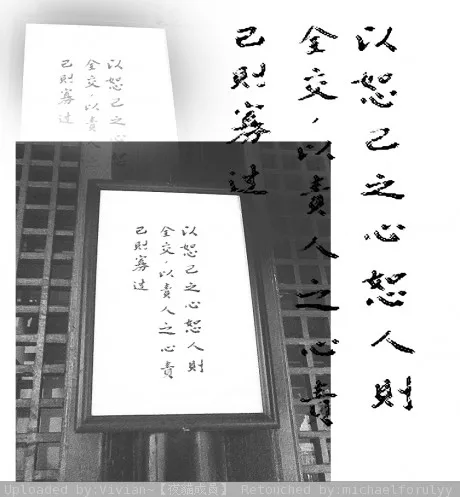 以恕己之心恕人則
全交，以責人之心責
己則寡過
以恕己之心
全交，以責人
己則寡過
以恕己之心恕人則
全交，以責人之心責
己則寡過
Uploaded by:Vivian~【夜貓成員】 Retouched by:michaelforulyy